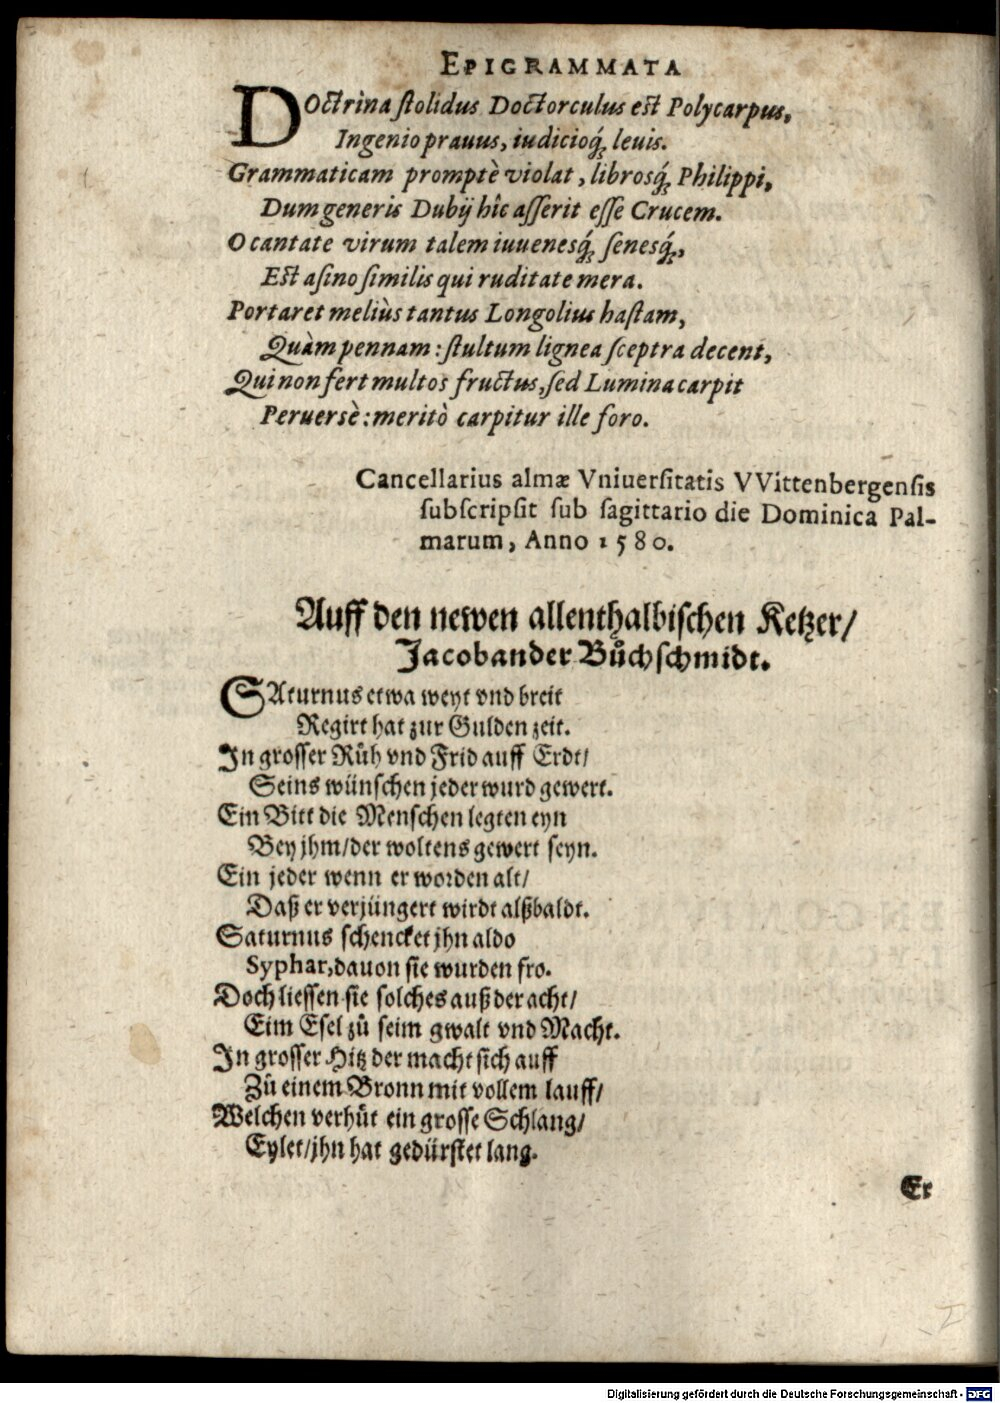 EPIGRAMMATA
DOctrina ſtolidus Doctorculus eſt Polycarpus,
Ingenio prauus, iudicioq́; leuis.
Grammaticam promptè violat, librosq́; Philippi,
Dum generis Dubij hîc aſſerit eſſe Crucem.
O cantate virum talem iuuenesq́; ſenesq́;,
Eſt aſino ſimilis qui ruditate mera.
Portaret meliùs tantus Longolius haſtam,
Quàm pennam: ſtultum lignea ſceptra decent,
Qui non fert multos fructus, ſed Lumina carpit
Peruersè: meritò carpitur ille foro.
Cancellarius almæ Vniuerſitatis VVittenbergenſis
ſubſcripſit ſub ſagittario die Dominica Pal-
marum, Anno 1580.
Auff den newen allenthalbiſchen Ketzer/
Jacobander Bůchſchmidt.
SAturnus etwa weyt vnd breit
Regirt hat zur Gulden zeit.
In groſſer Růh vnd Frid auff Erdt/
Seins wünſchen jeder wurd gewert.
Ein Bitt die Menſchen legten eyn
Bey jhm/der woltens gewert ſeyn.
Ein jeder wenn er worden alt/
Daß er verjüngert wirdt alßbaldt.
Saturnus ſchencket jhn aldo
Syphar, dauon ſie wurden fro.
Doch lieſſen ſie ſolches auß der acht/
Eim Eſel zů ſeim gwalt vnd Macht.
In groſſer Hitz der macht ſich auff
Zů einem Bronn mit vollem lauff/
Welchen verhůt ein groſſe Schlang/
Eylet/jhn hat gedürſtet lang.
Er
Digitalisierung gefördert durch die Deutsche Forschungsgemeinschaft - DFG